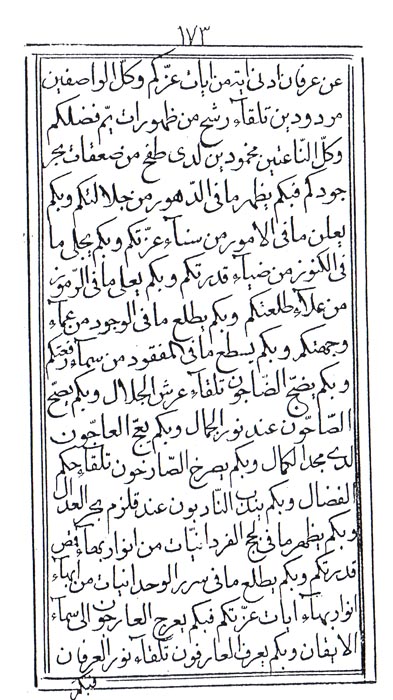 ١٧٣
عن عرفان ادنى اية من ايات عزّكم وكلّ الواصفين
مردودين تلقآء رشح من ظهورات يمّ فضلكم
وكلّ النّاعتين مخمودين لدى طفح من ضعفات بحر
جودكم فبكم يظهر ما فى الدّهور من جلالتكم وبكم
يعلن ما فى الامور من سنآء عزّتكم وبكم يجلى ما
فى الكنوز من ضيآء قدرتكم وبكم يعلى ما فى الرّموز
من علآء طلعتكم وبكم يطلع ما فى الوجود من عمآء
وجهتكم وبكم يسطع ما فى المفقود من سمآء رفعتكم
وبكم يضجّ الضّاجّون تلقآء عرش الجلال وبكم يصحّ
الصّاحّون عند نور الجمال وبكم يعجّ العاجّون
لدى مجد الكمال وبكم يصرخ الصّارخون تلقآء حكم
الفضال وبكم يندب النّادبون عند قلزم بحر العدال
وبكم يظهر ما فى لجج الفردانيّات من انوار بهآء
قدرتكم وبكم يطلع ما فى سرر الوحدانيات من ابهآء
انوار بهآء ايات عزّتكم فبكم يعرج العارجون الى سمآء
الايقان وبكم يعرف العارفون تلقآء نور العرفان
فبكم